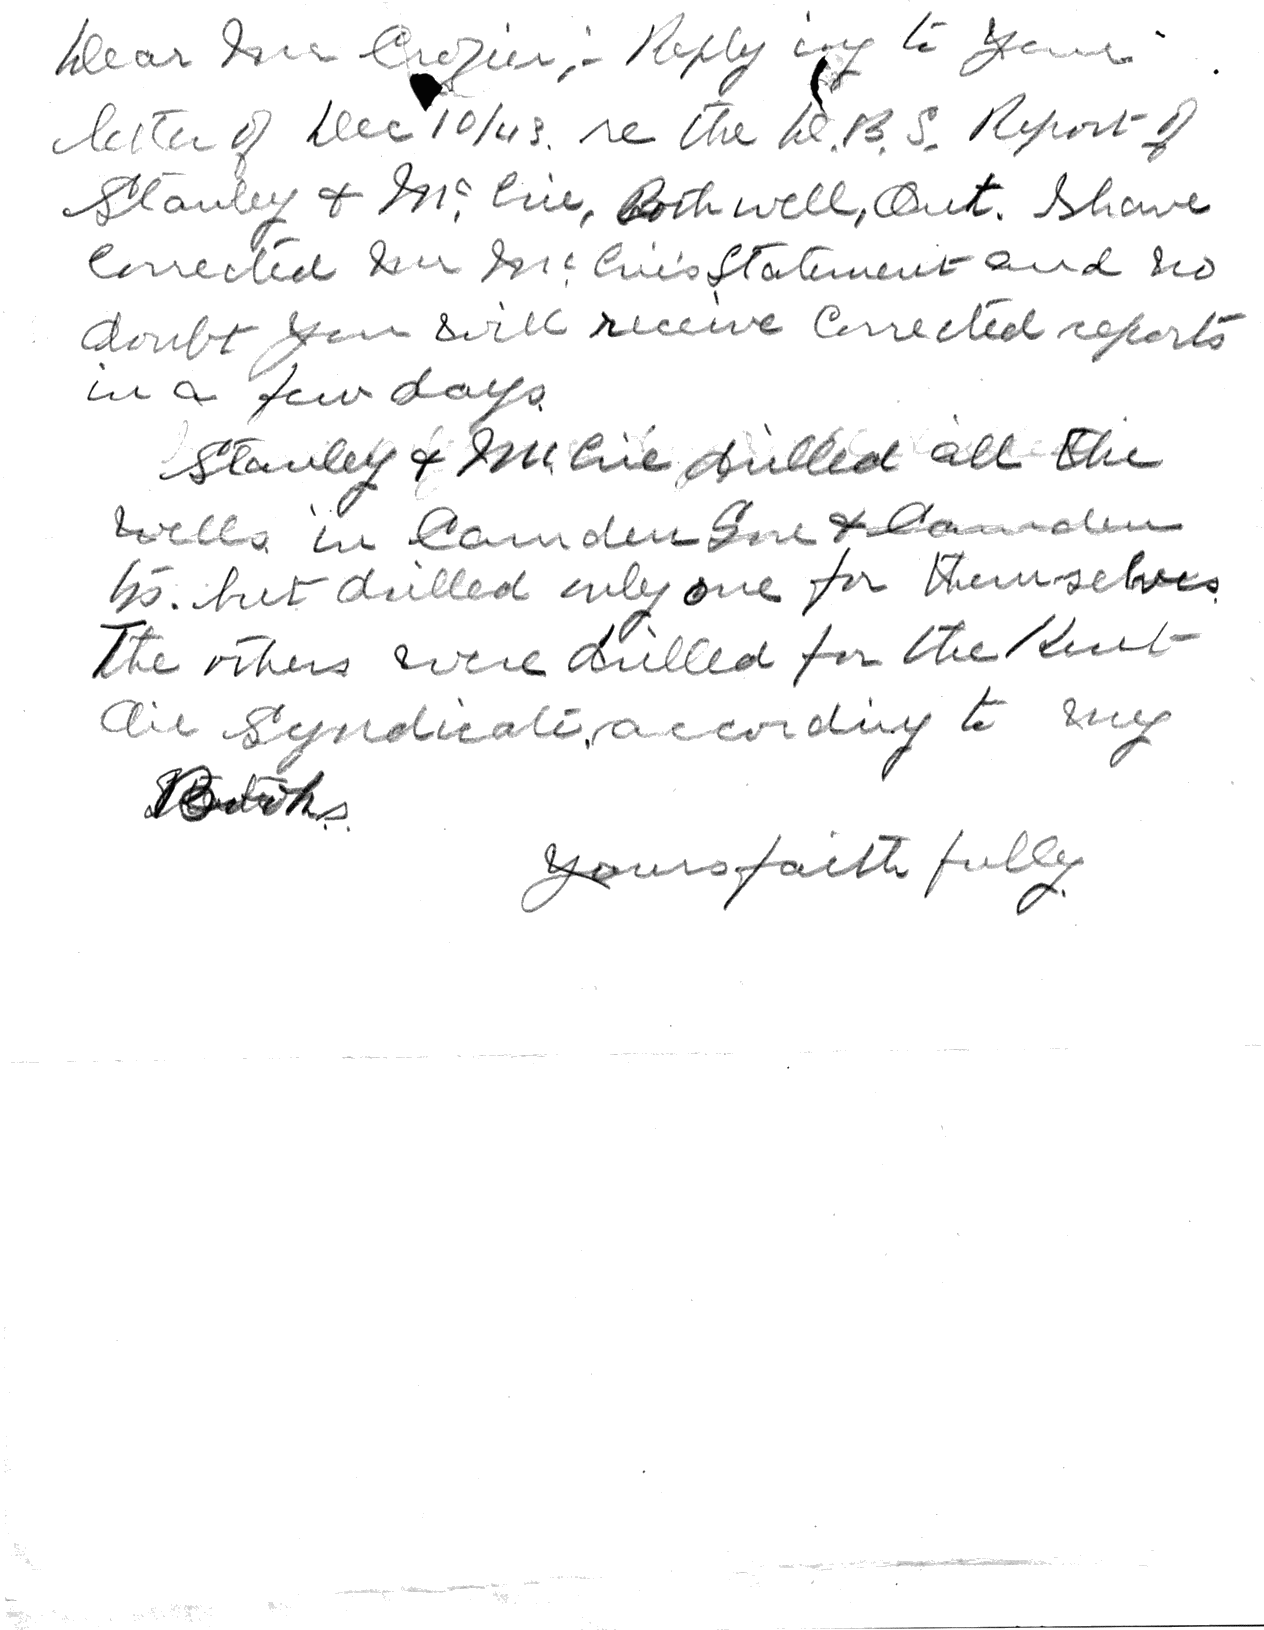 Dear Mr Crozier;- Reply ing to Your
letter of Dec 10/43. re the D.B.S. Report of
Stanley & Mc. Crie, Bothwell, Ont. I have
Corrected Mr Mc. Crie's Statement and no
doubt You will receive Corrected reports
in a few days.
Stanley & Mc. Crie drilled all the
wells in Camden Gore & Camden
but drilled only one for themselves.
The others were drilled for the Kent
Oil Syndicate, according to my
Books.
Yours faithfully.